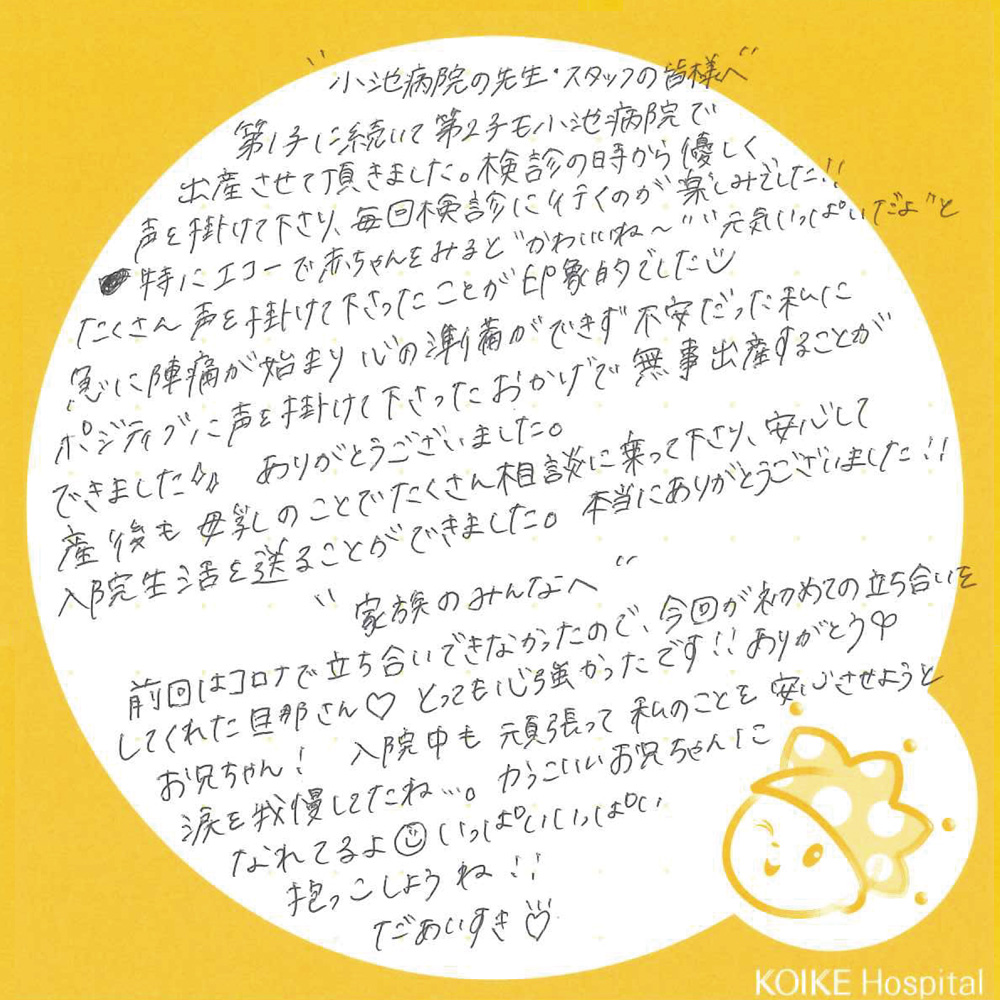 "小池病院の先生・スタッフの皆様へ"
第1子に続いて第2子も小池病院で
出産させて頂きました。検診の時から優しく
声を掛けて下さり、毎回検診に行くのが楽しみでした!!
特にエコーで赤ちゃんをみると"かわいいね〜""元気いっぱいだよ"と
たくさん声を掛けて下さったことが印象的でした
急に陣痛が始まり心の準備ができず不安だった私に
ポジティブに声を掛けて下さったおかげで無事出産することが
できました♪♪ ありがとうございました。
産後も母乳のことでたくさん相談に乗って下さり、安心して
入院生活を送ることができました。本当にありがとうございました!!
"家族のみんなへ"
前回はコロナで立ち合いできなかったので、今回が初めての立ち合いを
してくれた旦那さん♡ とっても心強かったです!!ありがとう♡
お兄ちゃん! 入院中も頑張って私のことを安心させようと
涙を我慢してたね…。かっこいいお兄ちゃんに
なれてるよ☺いっぱいいっぱい
抱っこしようね!!
だあいすき♡
KOIKE Hospital